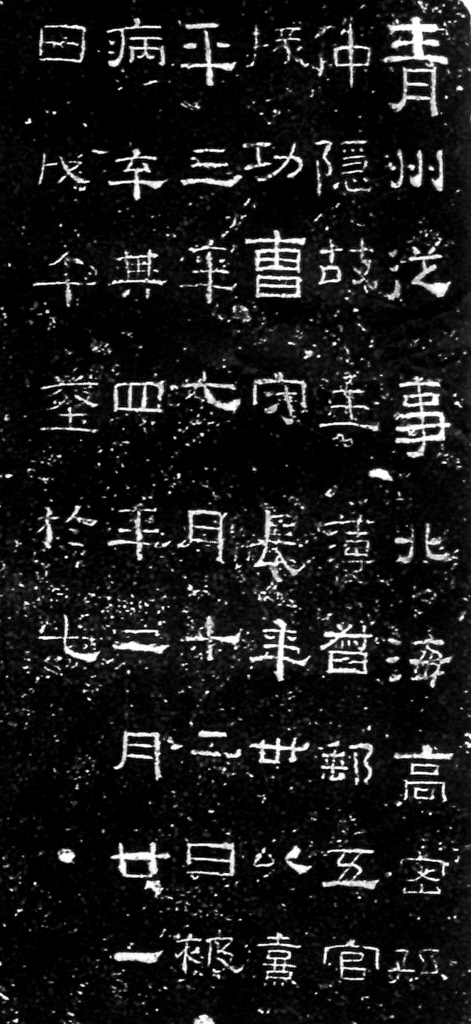 青州從事北海高密孫
仲隱故主薄督郵五官
掾功曹守長年卅以熹
平三年七月十二日被
病卒其四年二月廿一
日戊午葬於此